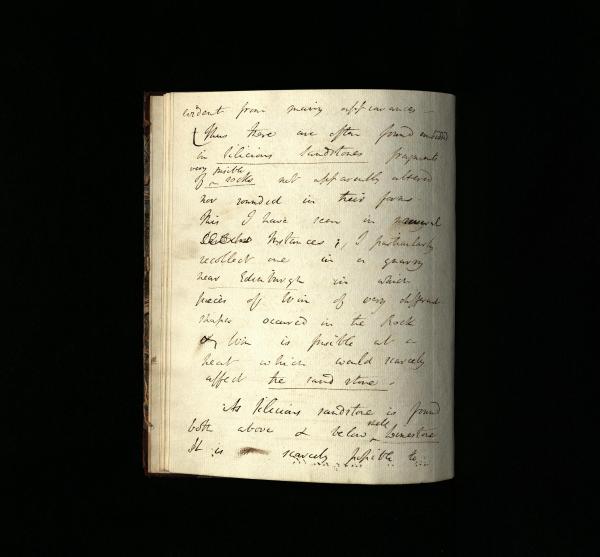 evident from many appearances –
(Thus there are often found imbedded
in silicious sandstones fragments
very fusible
of rocks not apparently altered
nor rounded in their forms
This I have seen in
Instances ; I particularly
recollect one in a quarry
near Edinburgh in which
pieces of Win of very different
shapes occurred in the Rock
Win is fusible at a
heat which would scarcely
affect the sand stone .
As silicious sandstone is found
both above & below shell limestone
It is scarcely possible to